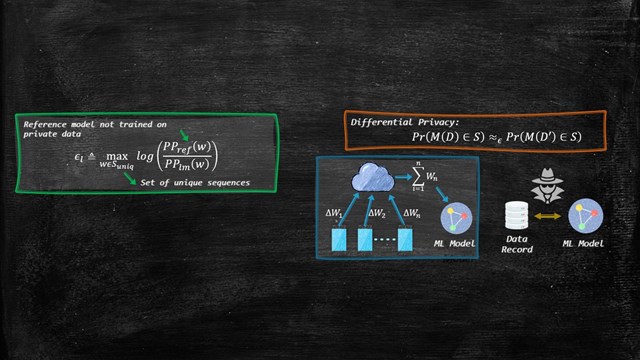 Reference model not trained on
private data
ϵ_l ≜ max_{wϵS_uniq} log (PP_ref(w) / PP_lm(w))
Set of unique sequences
Differential Privacy:
Pr(M(D) ∈ S) ≈_ϵ Pr(M(D′) ∈ S)
∑_{i=1}^{n} W_n
ΔW_1 ΔW_2 ΔW_n
ML Model
Data
Record
ML Model